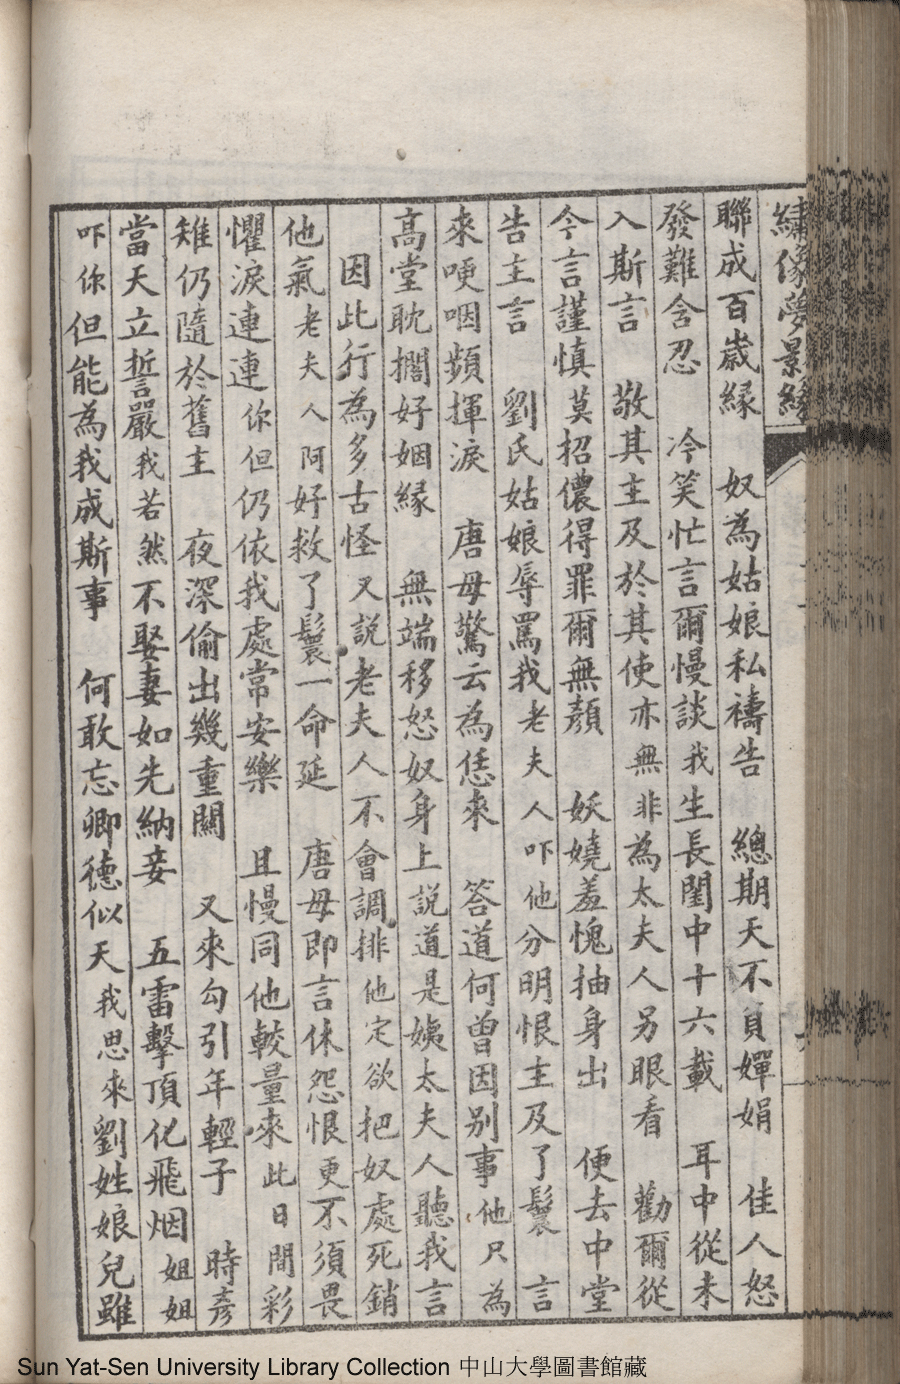 繡像夢景緣
聯成百歲緣　奴為姑娘私禱告　總期天不負嬋娟　佳人怒
發難含忍　冷笑忙言爾慢談我生長閨中十六載　耳中從未
入斯言　敬其主及於其使亦無非為太夫人另眼看　勸爾從
今言謹慎莫招儂得罪爾無顏　妖嬈羞愧抽身出　便去中堂
告主言　劉氏姑娘辱罵我老夫人吓他分明恨主及了鬟　言
來哽咽頻揮淚　唐母驚云為恁來　答道何曾因別事他只為
高堂耽擱好姻緣　無端移怒奴身上說道是姨太夫人聽我言
因此行為多古怪又說老夫人不會調排他定欲把奴處死銷
他氣老夫人阿好救了鬟一命延　唐母即言休怨恨更不須畏
懼淚連連你但仍依我處常安樂　且慢同他較量來此日間彩
雉仍隨於舊主　夜深偷出幾重關　又來勾引年輕子　時彥
當天立誓嚴我若然不娶妻如先納妾　五雷擊頂化飛烟姐姐
吓你但能為我成斯事　何敢忘卿德似天我思來劉姓娘兒雖
Sun Yat-Sen University Library Collection 中山大學圖書館藏